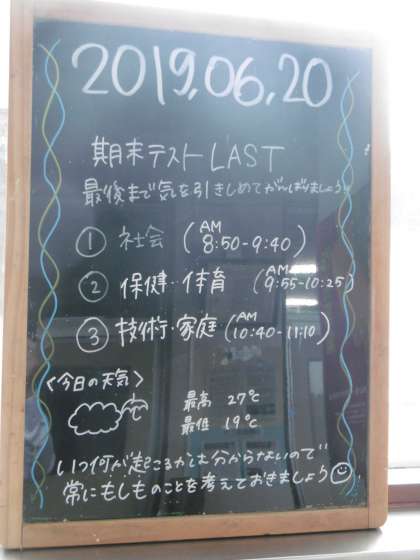 2019.06.20
期末テスト LAST
最後まで気を引きしめてがんばりましょう
① 社会 (AM 8:50-9:40)
② 保健・体育 (AM 9:55-10:25)
③ 技術・家庭 (AM 10:40-11:10)
<今日の天気>
最高 27℃
最低 19℃
いつ何が起こるかは分からないので
常にもしものことを考えておきましょう☺